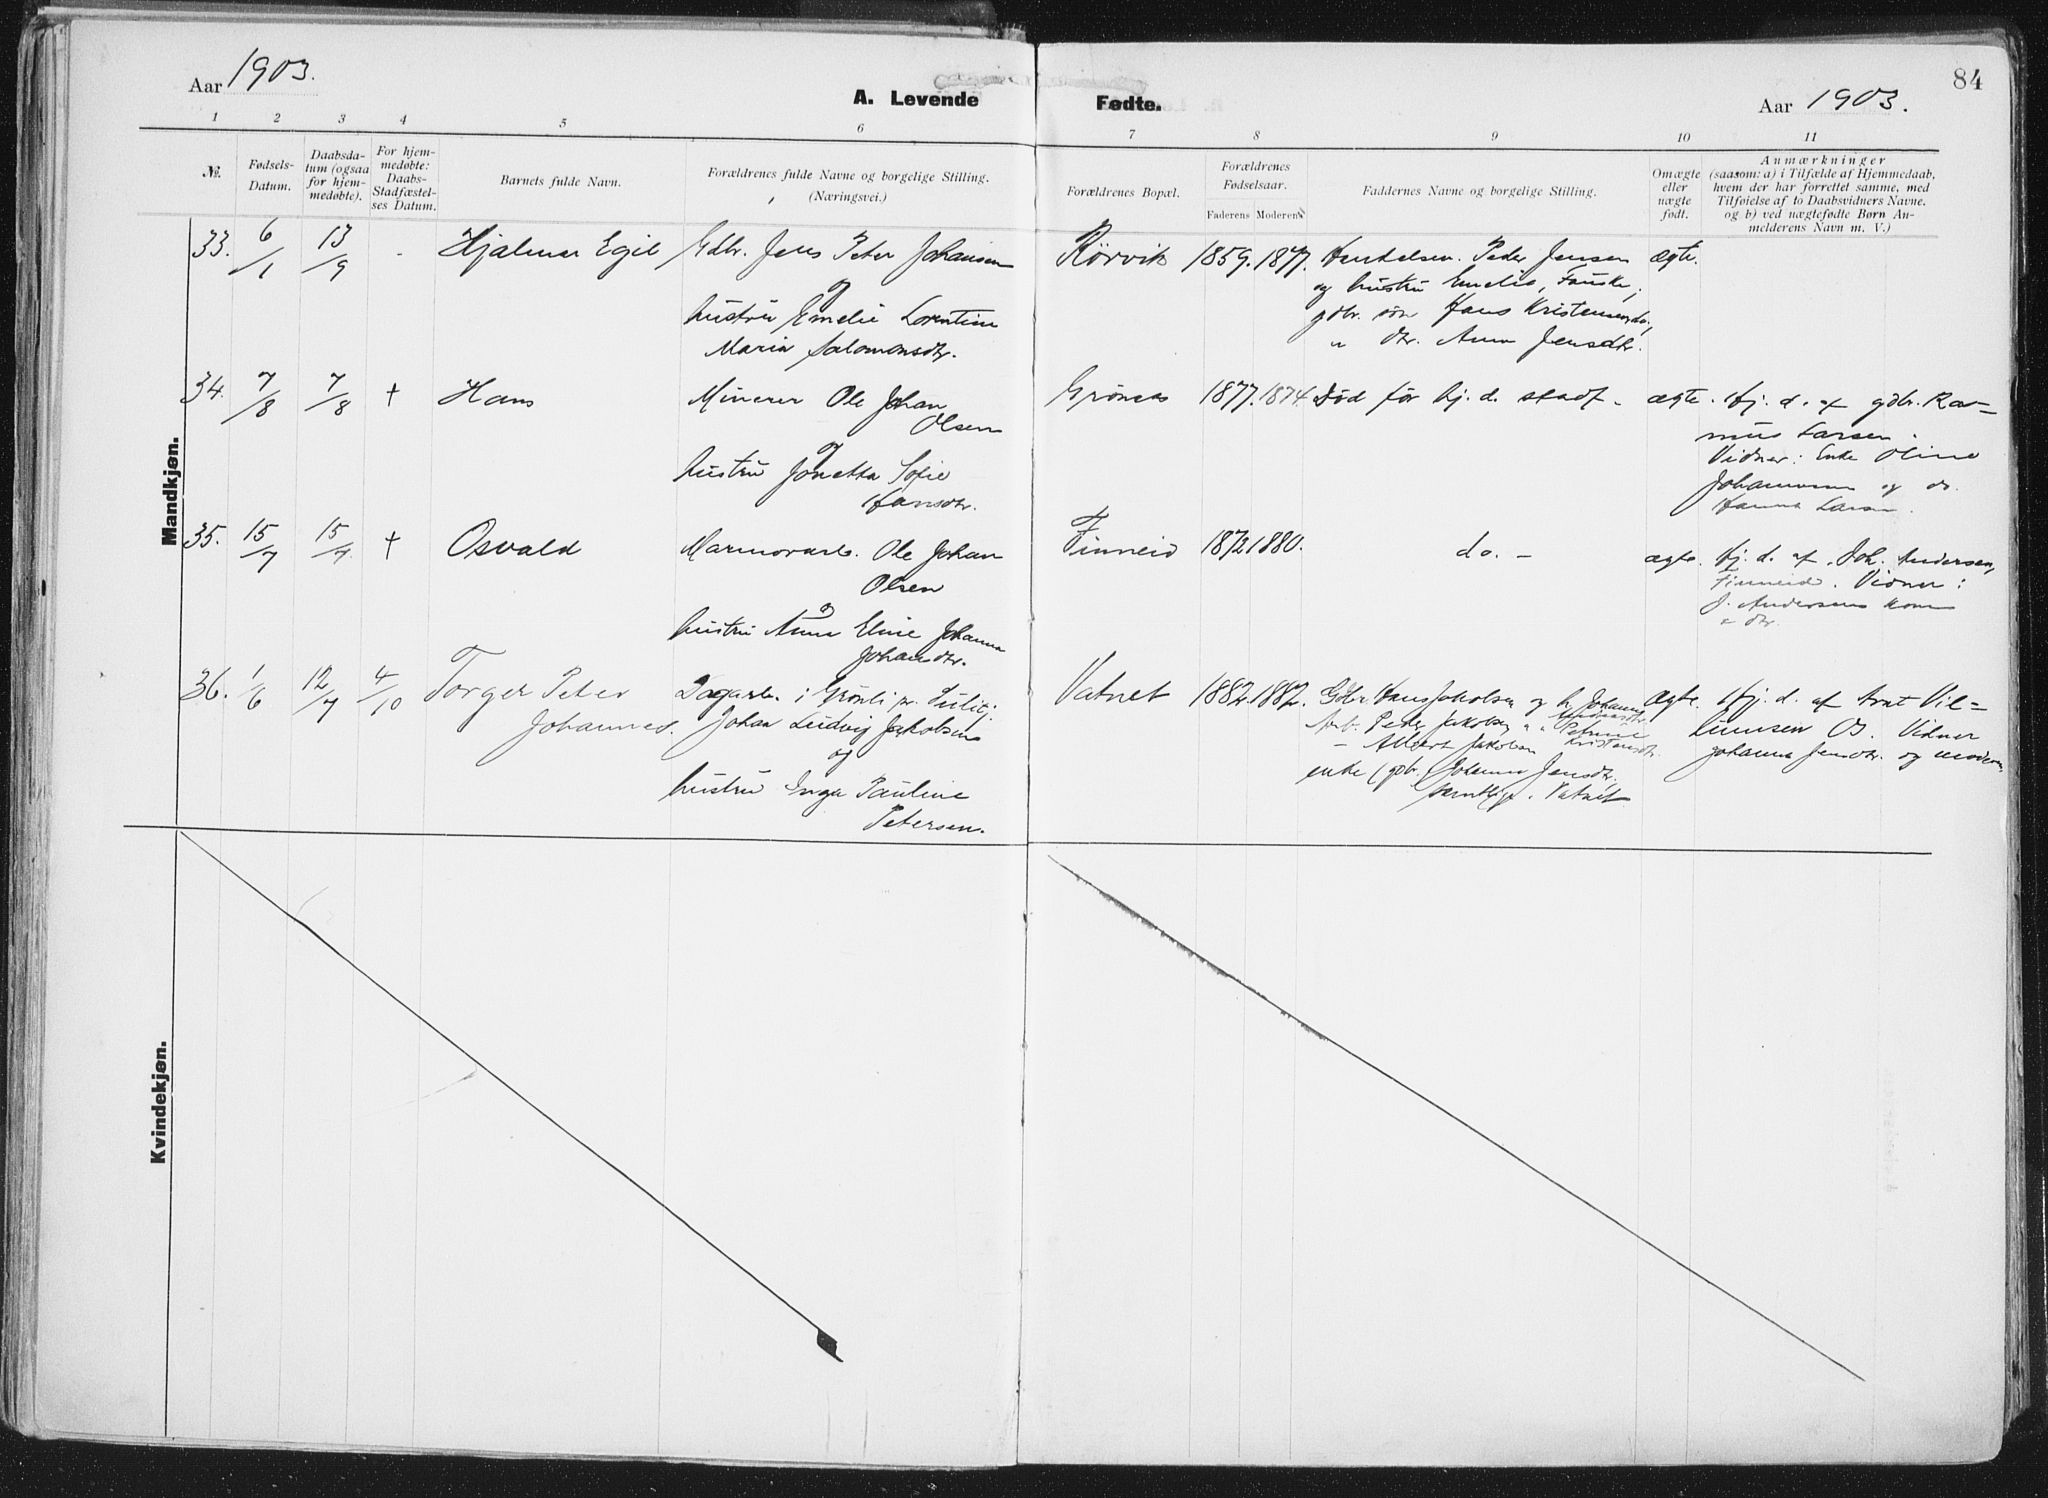 Aar 1903.
A. Levende Fødte.
84
Aar 1903.
1 2 3 4 5 6 7 8 9 10 11
№.
Fødsels-
Datum.
Daabsda-
tum (ogsaa
for hjem-
medøbte).
For hjem-
medøbte:
Daabs-
Stadfæstel-
ses Datum.
Barnets fulde Navn.
Forældrenes fulde Navne og borgelige Stilling.
(Næringsvei.)
Forældrenes Bopæl.
Forældrenes
Fødselsaar.
Faderens Moderens
Faddernes Navne og borgelige Stilling.
Omægte
eller
uægte
født.
Anmærkninger
(saasom: a) i Tilfælde af Hjemmedaab,
hvem der har forrettet samme, med
Tilføielse af to Daabsvidners Navne.
og b) ved uægtefødte Børn An-
melderens Navn m. V.)
Mandkjøn.
33. 6/1 13/9 - Hjalmar Egil
Gdbr. Jens Peter Johansen
og
hustru Emelie Lorentine
Maria Salomonsdtr.
Rörvik 1859. 1877.
Peder Jensen
og hustru Emelie, Fauske,
gdbr. søn Hans Kristensen
" dtr. Anna Jensdtr.
ægte.
34. 7/8 7/8 + Hans
Minerer Ole Johan
Olsen
og
hustru Jonetta Sofie
Hansdtr.
Grönaas 1877. 1874. Död för hj. d. stadf. ægte.
Hj. d. af gdbr. Ras-
mus Larsen.
Vidner: Enke Oline
Johannesen og dr.
Hanna Larsen.
35. 15/7 15/7 + Osvald
Marmorarb. Ole Johan
Olsen
og
hustru Anna Eline Johanna
Johansdtr.
Finneid 1872 1880. do. - ægte.
Hj. d. af Joh. Andersen,
Finneid. Vidner:
J. Andersens kone
& dtr.
36. 1/6 12/7 4/10 Torger Peter
Johannes.
Dagarb. i Grönli pr. Sulitj.
Johan Ludvig Jakobsen
og
hustru Inga Pauline
Petersen.
Vatnet 1882. 1882.
Gdbr. Hans Jakobsen og h. Johanna
Peder Jakobsen " " Petrine
Kristensdtr.
- Albert Jakobsen
enke gdbr. Johanna Jensdtr.
samtlige. Vatnet
ægte.
Hj. d. af
Vidner
Johanna Jensdtr. og moderen
Kvindekjøn.